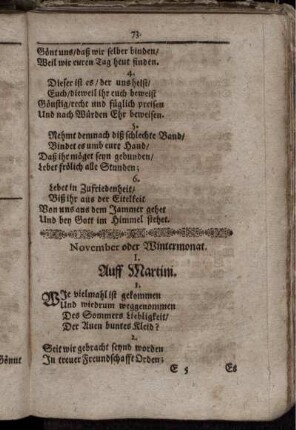 73.
Gönt uns/ daß wir selber binden/
Weil wir euren Tag heut finden.
4.
Dieser ist es/ der uns heist/
Euch/ dieweil ihr euch beweist
Günstig/ recht und füglich preisen
Und nach Würden Ehr beweisen.
5.
Nehmt demnach diß schlechte Band/
Bindet es umb eure Hand/
Daß ihr möget seyn gebunden/
Lebet frölich alle Stunden;
6.
Lebet in Zufriedenheit/
Biß ihr aus der Eitelkeit
Von uns aus dem Jammer gehet
Und bey Gott im Himmel stehet.
November oder Wintermonat.
I.
Auff Martini.
1.
WIe vielmahl ist gekommen
Und wiedrum weggenommen
Des Sommers Liebligkeit/
Der Auen buntes Kleid?
2.
Seit wir gebracht seynd worden
In treuer Freundschafft Orden;
E 5
Es
Gönnt